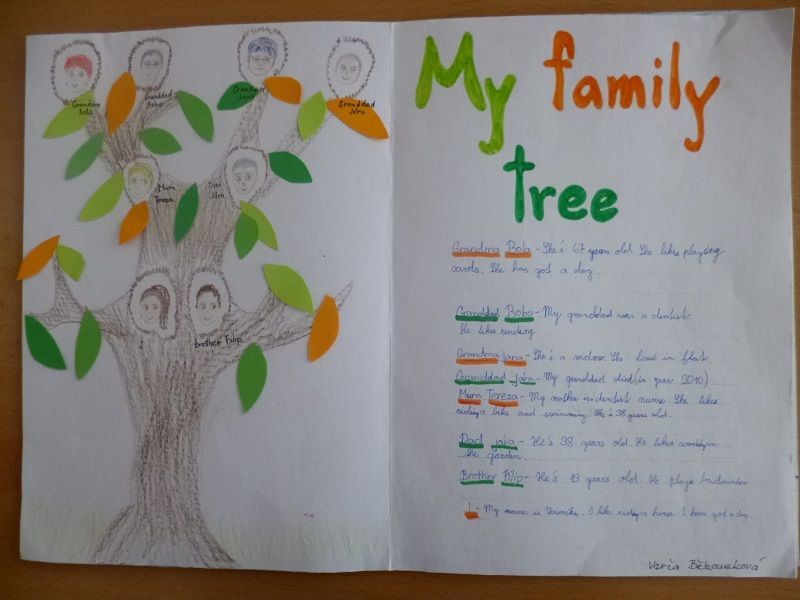 Grandma
Bola
Granddad
Bobo
Grandma
Jana
Granddad
Jára
Mum
Tereza
Dad
Jára
I
brother Filip
My family
tree
Grandma Bola - She's 67 years old. She likes playing
cards. She has got a dog.
Granddad Bobo - My granddad was a dentist.
He likes reading.
Grandma Jana - She's a widow. She lives in flat.
Granddad Jára - My granddad died (in year 2010)
Mum Tereza - My mother is dentist nurse. She likes
riding a bike and swimming. She's 38 years old.
Dad Jára - He's 38 years old. He likes working in
the garden.
Brother Filip - He's 13 years old. He plays badminton
I - My name is Veronika. I like riding a horse. I have got a dog.
Verča